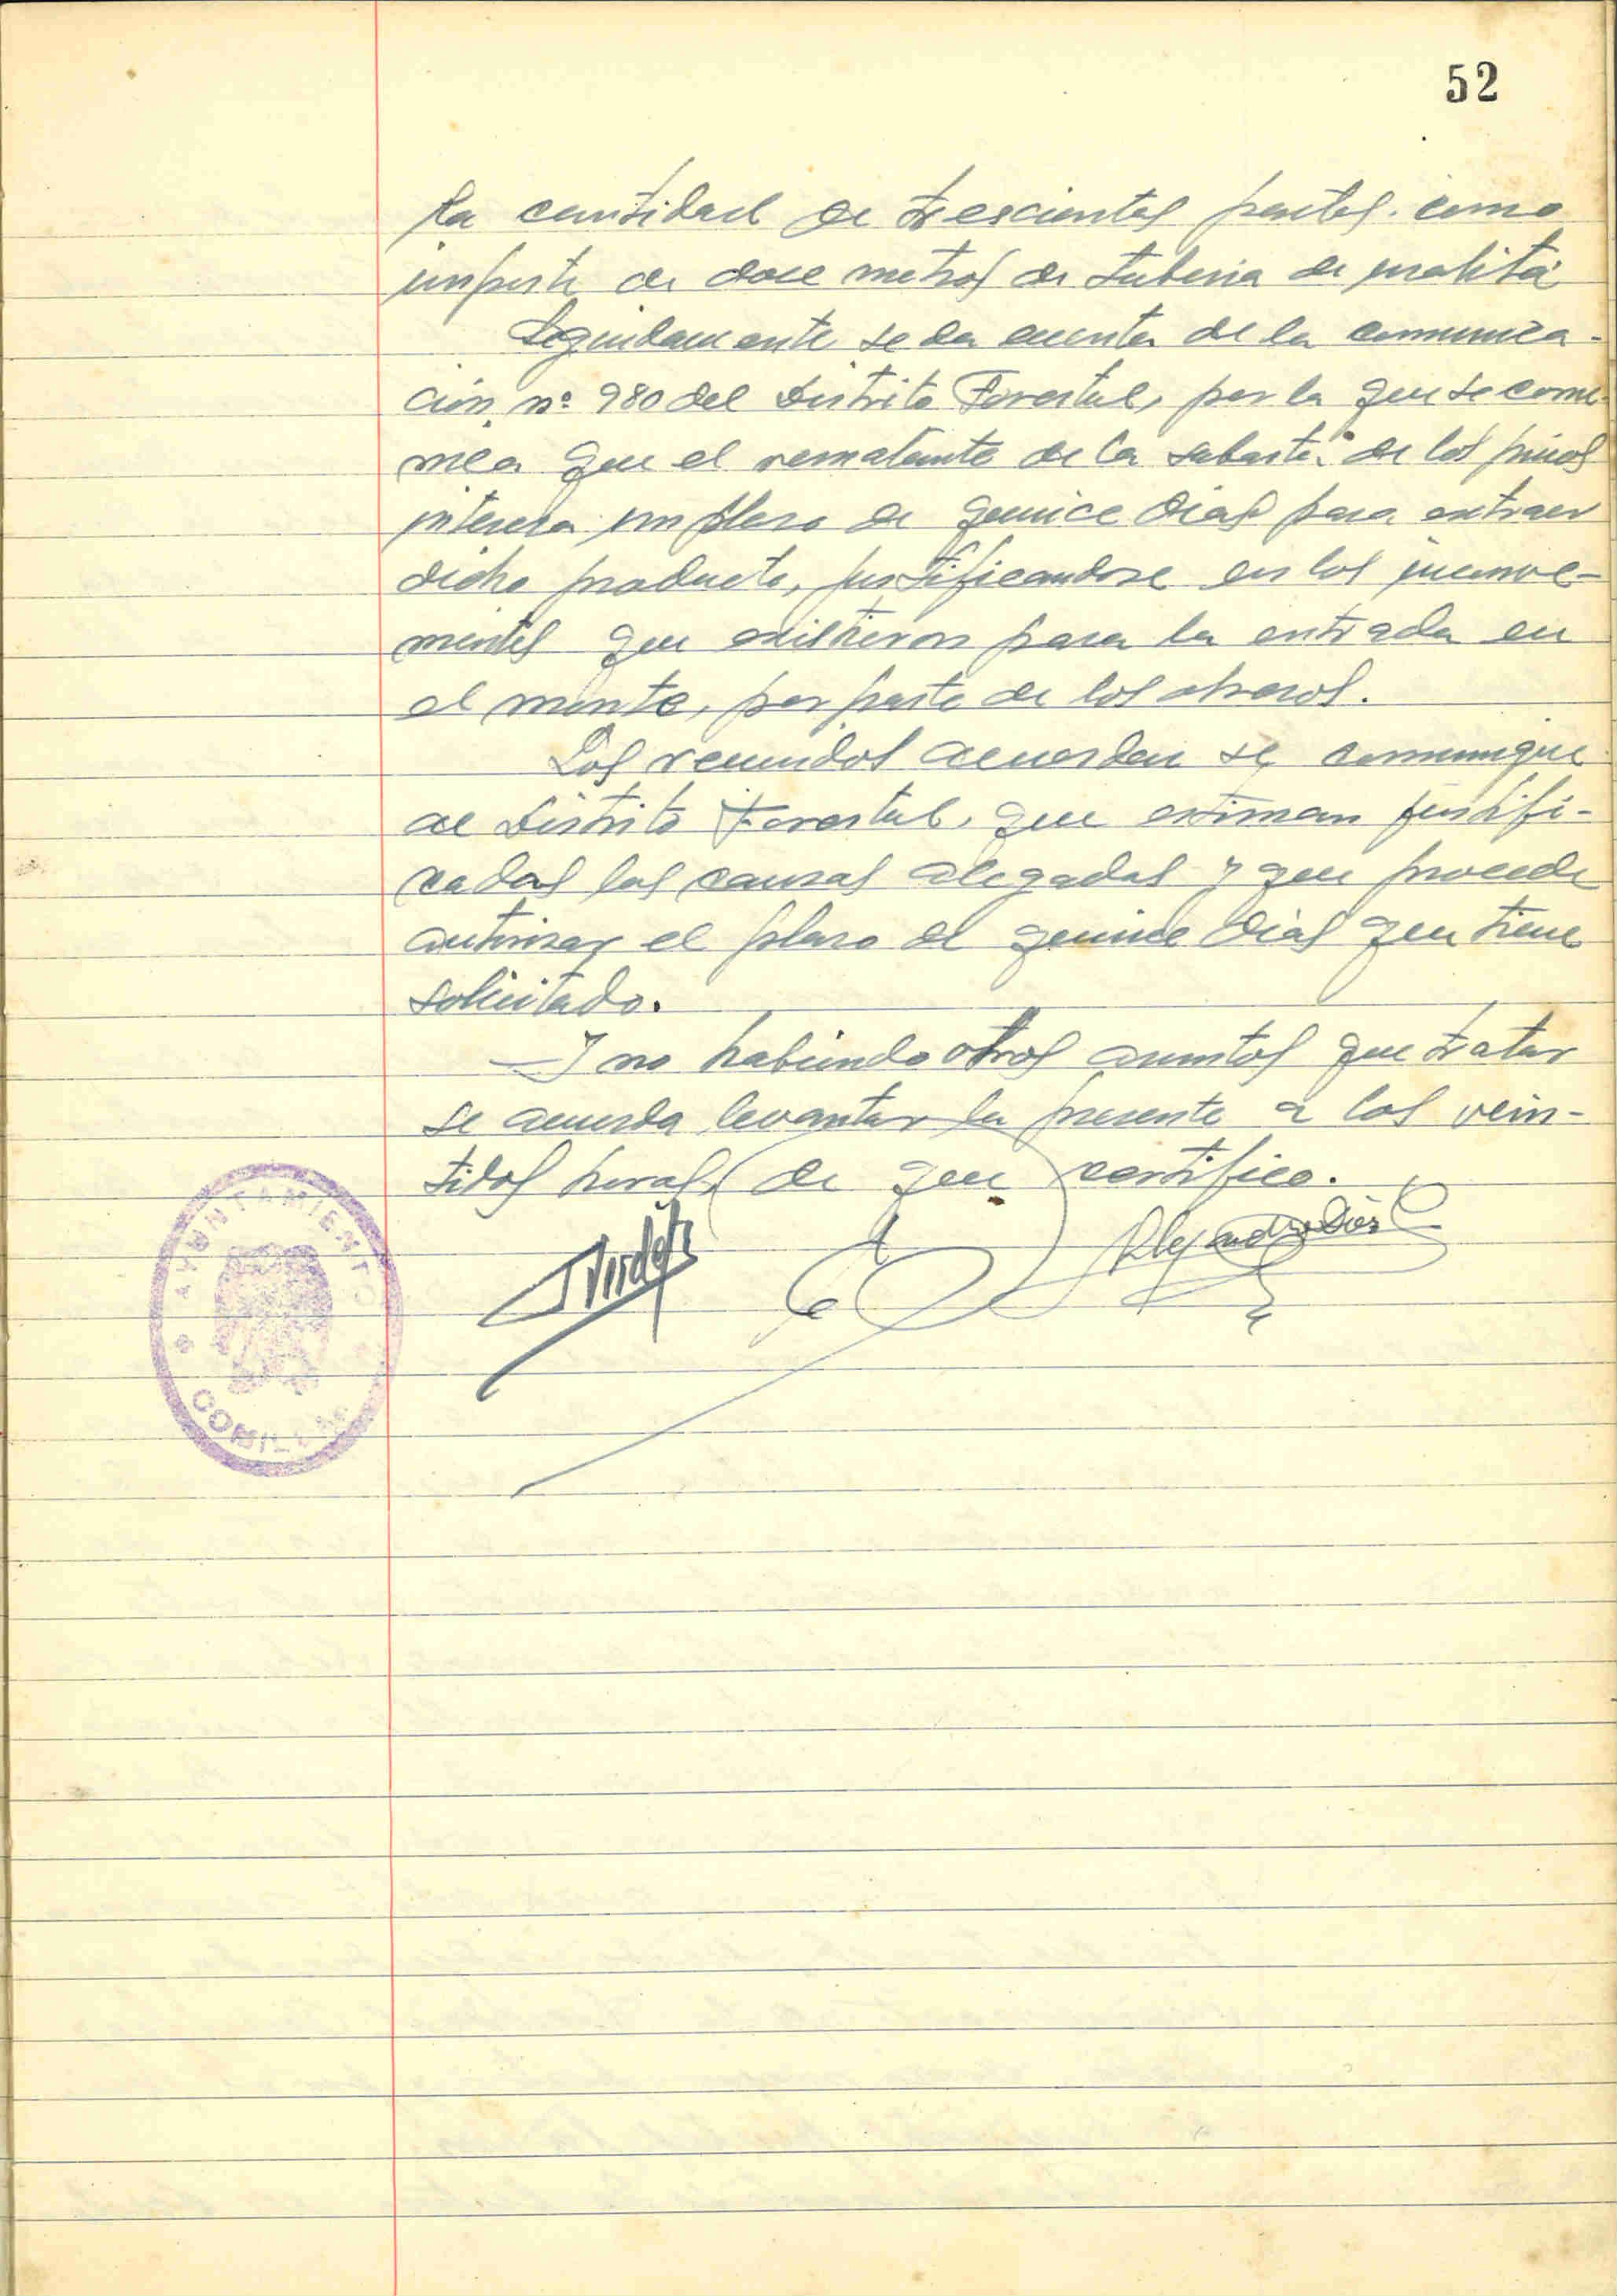 52
la cantidad de trescientas pesetas como
importe de doce metros de tuberia de uralita
Seguidamente se da cuenta de la comunica-
ción nº 980 del Distrito Forestal, por la que se comu-
nica que el rematante de la subasta de los pinos
interesa un plazo de quince dias para extraer
dicho producto, justificandose en los inconve-
nientes que existieron para la entrada en
el monte, por parte de los obreros.
Los reunidos acuerdan se comunique
al Distrito Forestal, que estiman justifi-
cadas las causas alegadas y que procede
autorizar el plazo de quince dias que tiene
solicitado.
Y no habiendo otros asuntos que tratar
se acuerda levantar la presente a las vein-
tidos horas, de que certifico.
Alejandro Diez
AYUNTAMIENTO
COMILLAS